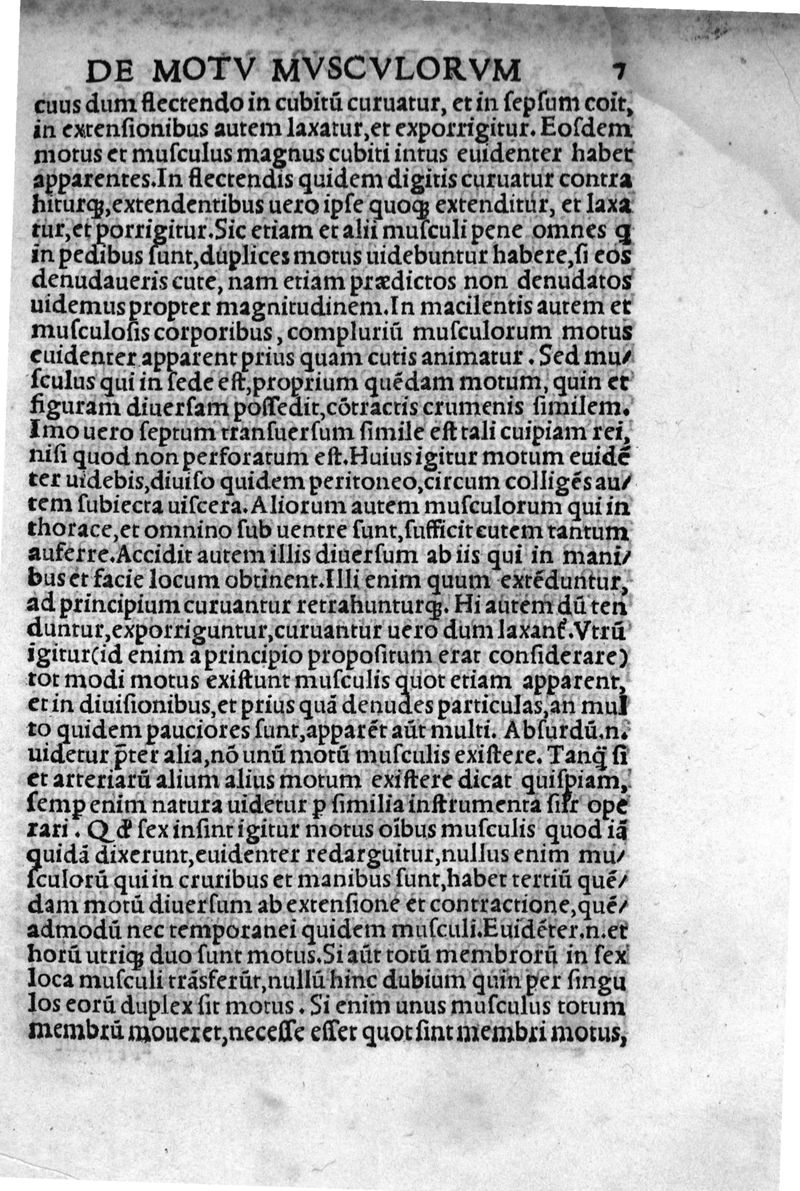 DE MOTV MVSCVLORVM 7
cuus dum flectendo in cubitū curuatur, et in sepsum coit,
in extensionibus autem laxatur,et exporrigitur. Eosdem
motus et musculus magnus cubiti intus euidenter habet
apparentes.In flectendis quidem digitis curuatur contra
hiturqꝫ,extendentibus uero ipse quoqꝫ extenditur, et laxa
tur,et porrigitur.Sic etiam et alii musculi pene omnes q
in pedibus sunt,duplices motus uidebuntur habere,si eos
denudaueris cute, nam etiam prædictos non denudatos
uidemus propter magnitudinem.In macilentis autem et
musculosis corporibus, compluriū musculorum motus
euidenter apparent prius quam cutis animatur . Sed mu/
sculus qui in sede est,proprium quēdam motum, quin et
figuram diuersam possedit,cōtractis crumenis similem.
Imo uero septum transuersum simile est tali cuipiam rei,
nisi quod non perforatum est.Huius igitur motum euidē
ter uidebis,diuiso quidem peritoneo,circum colligēs au/
tem subiecta uiscera.Aliorum autem musculorum qui in
thorace,et omnino sub uentre sunt,sufficit cutem tantum
auferre.Accidit autem illis diuersum ab iis qui in mani/
bus et facie locum obtinent.Illi enim quum extēduntur,
ad principium curuantur retrahunturqꝫ. Hi autem dū ten
duntur,exporriguntur,curuantur uero dum laxant᷑.Vtrū
igitur(id enim a principio propositum erat considerare)
tot modi motus existunt musculis quot etiam apparent,
et in diuisionibus,et prius quā denudes particulas,an mul
to quidem pauciores sunt,apparēt aūt multi. Absurdū.n.
uidetur p̄ter alia,nō unū motū musculis existere. Tanq̄ si
et arteriarū alium alius motum existere dicat quispiam,
semp enim natura uidetur p similia instrumenta sīr ope
rari . Q ď sex insint igitur motus oībus musculis quod iā
quidā dixerunt,euidenter redarguitur,nullus enim mu/
sculorū qui in cruribus et manibus sunt,habet tertiū quē/
dam motū diuersum ab extensione et contractione,quē/
admodū nec temporanei quidem musculi.Euidēter.n.et
horū utriqꝫ duo sunt motus.Si aūt totū membrorū in sex
loca musculi trāsferūt,nullū hinc dubium quin per singu
los eorū duplex sit motus . Si enim unus musculus totum
membrū moueret,necesse esset quot sint membri motus,